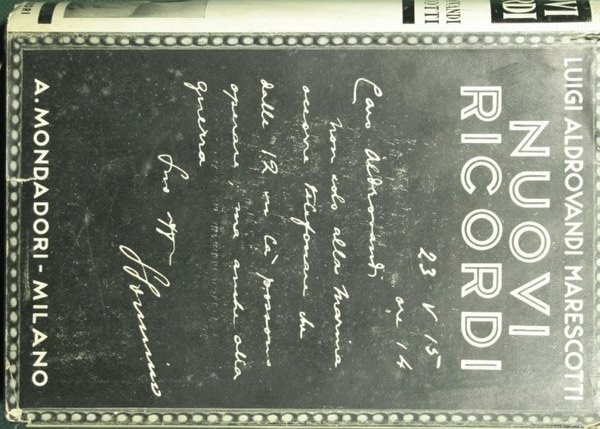 LUIGI ALDROVANDI MARESCOTTI
NUOVI
RICORDI
23 V 15
ore 14
Caro Aldrovandi,
non solo alla Marina
occorre telefonare che
dalle 12 in là possono
operare, ma anche alla
guerra
Suo
SSonnino
A. MONDADORI - MILANO